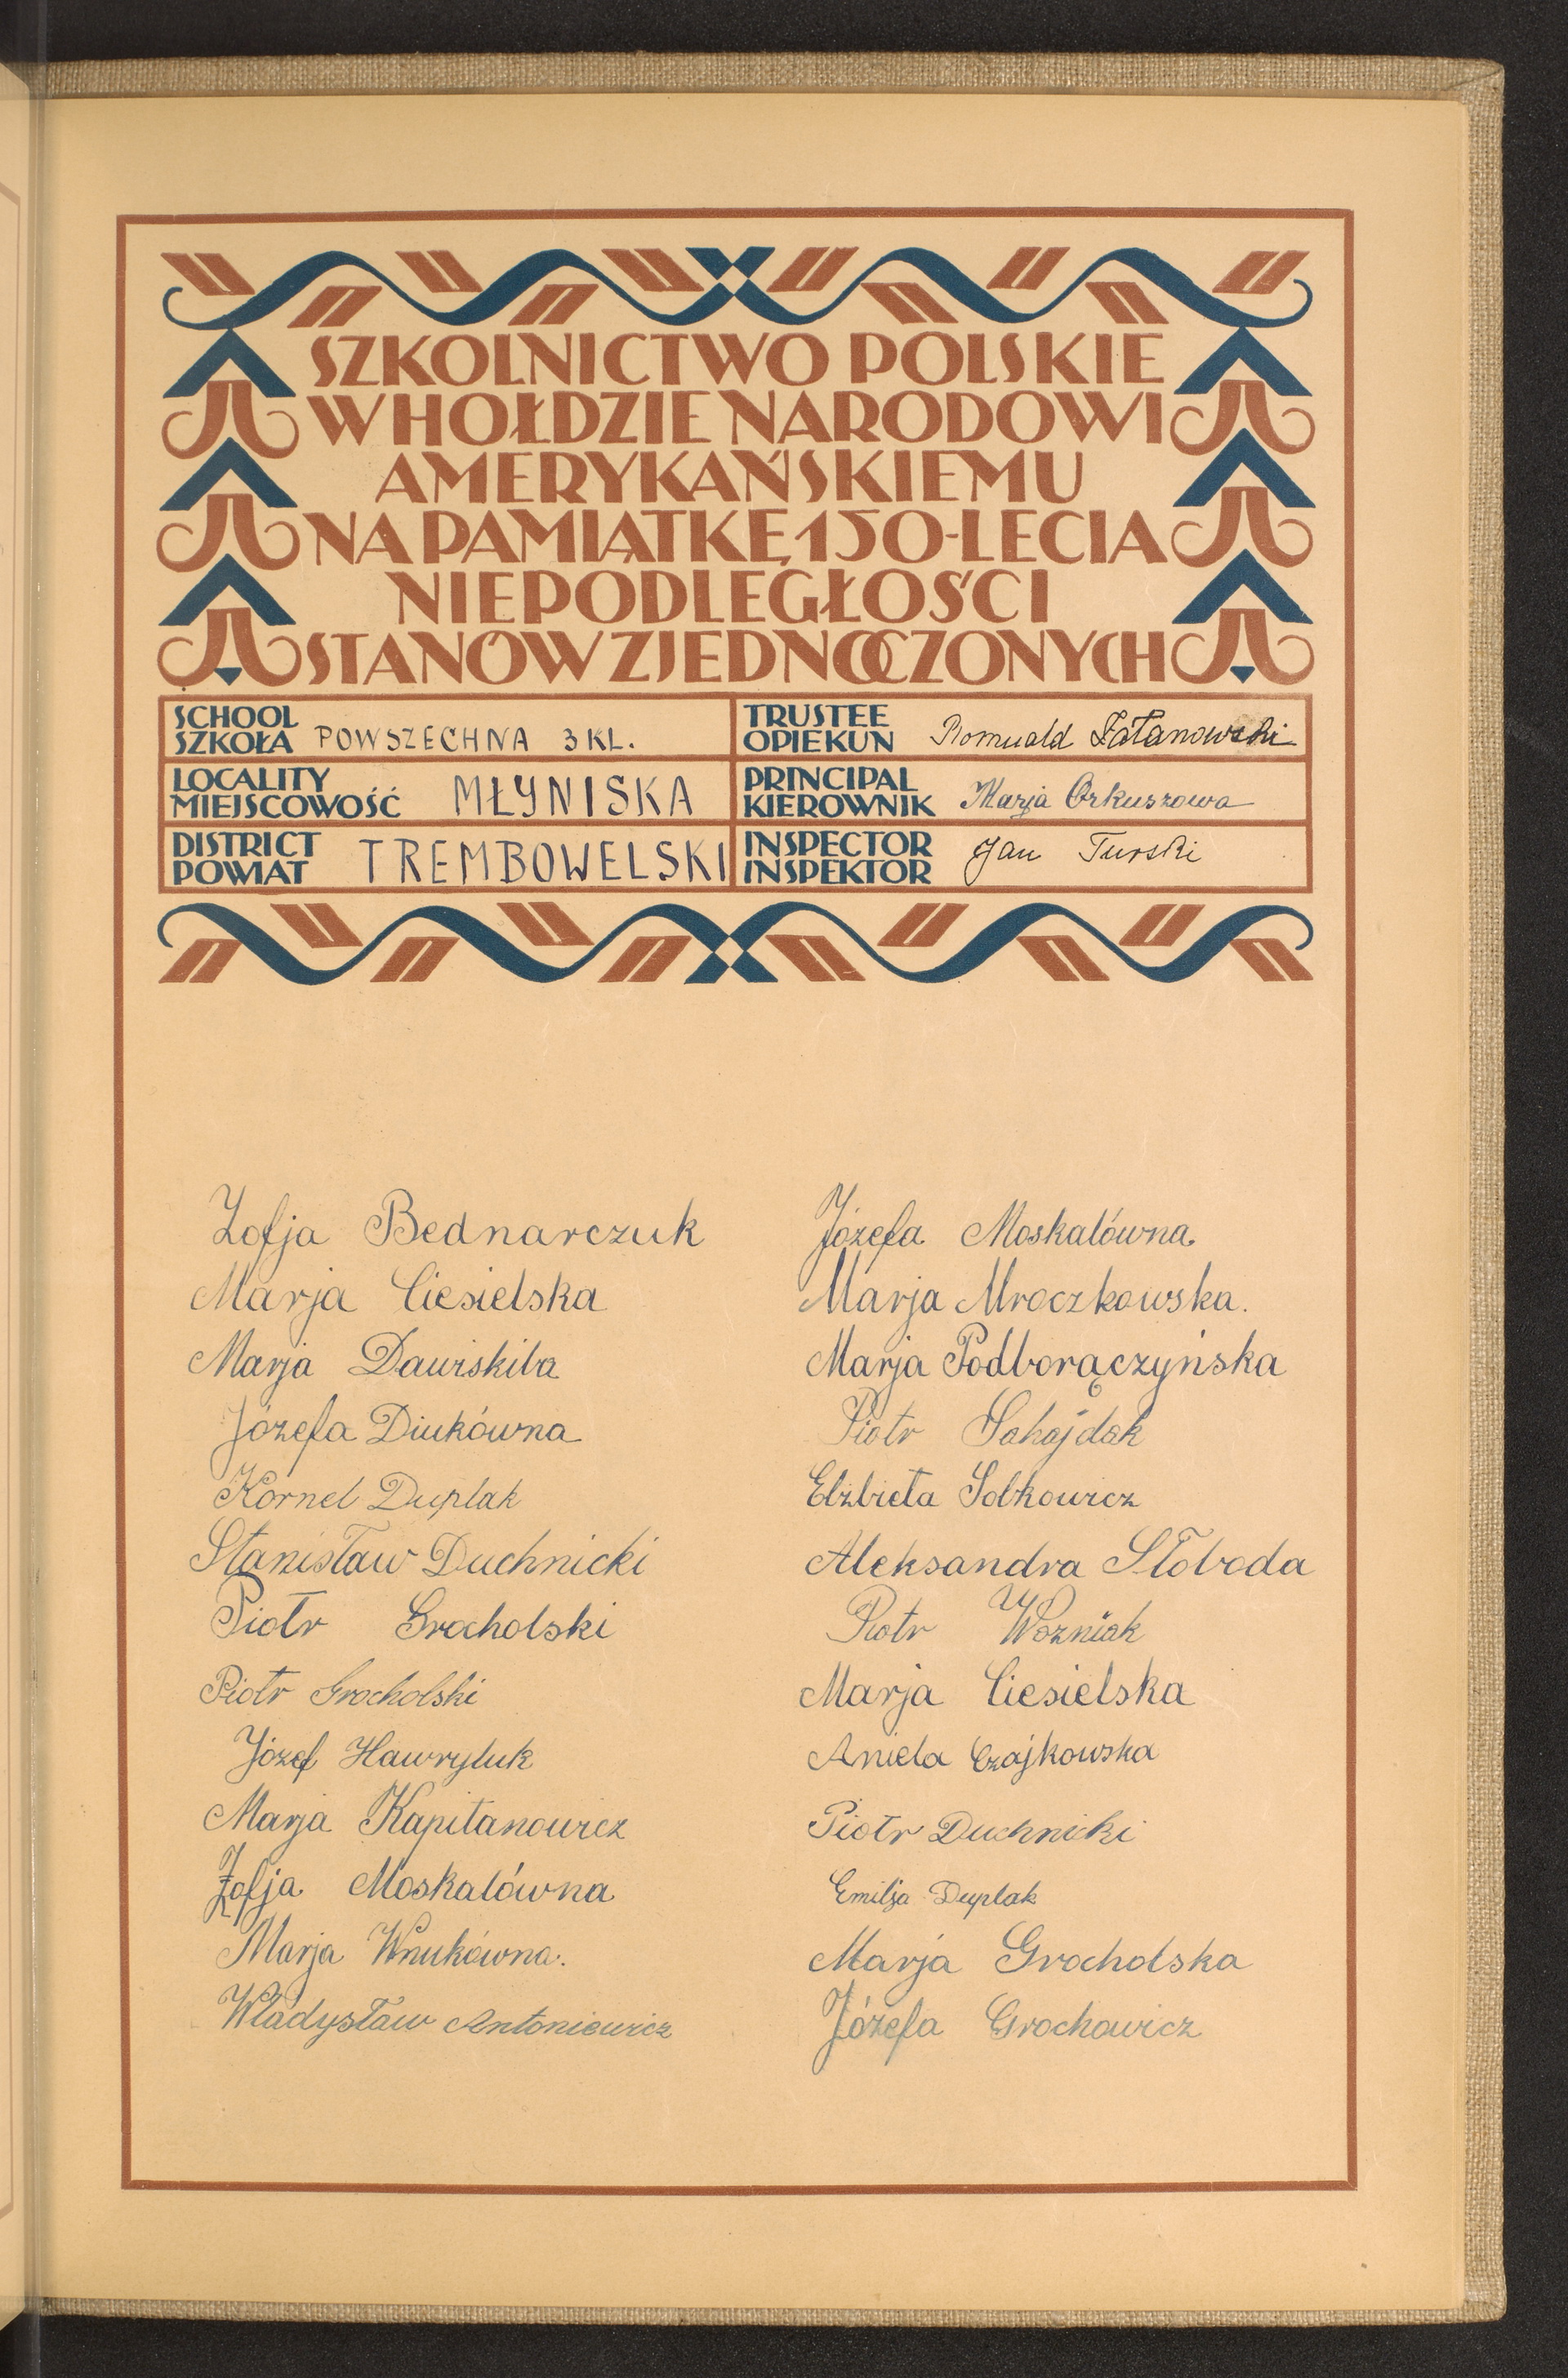 SZKOLNICTWO POLSKIE
W HOŁDZIE NARODOWI
AMERYKAŃSKIEMU
NA PAMIĄTKĘ 150-LECIA
NIEPODLEGŁOŚCI
STANÓW ZJEDNOCZONYCH
SCHOOL
SZKOŁA POWSZECHNA 3 KL.
TRUSTEE
OPIEKUN Romuald Fatanowski
LOCALITY
MIEJSCOWOŚĆ MŁYNISKA
PRINCIPAL
KIEROWNIK Marja Orkuszowa
DISTRICT
POWIAT TREMBOWELSKI
INSPECTOR
INSPEKTOR Jan Turski
Zofja Bednarczuk
Marja Ciesielska
Marja Dawiskiba
Józefa Diukówna
Kornel Duplak
Stanisław Duchnicki
Piotr Grocholski
Piotr Grocholski
Józef Hawryluk
Marja Kapitanowicz
Zofja Moskalówna
Marja Wnukówna.
Władysław Antoniewicz
Józefa Moskalówna
Marja Mroczkowska.
Marja Podborączyńska
Piotr Sahajdak
Elżbieta Sobkowicz
Aleksandra Słoboda
Piotr Wozniak
Marja Ciesielska
Aniela Czajkowska
Piotr Duchnicki
Emilja Duplak
Marja Grocholska
Józefa Grochowicz